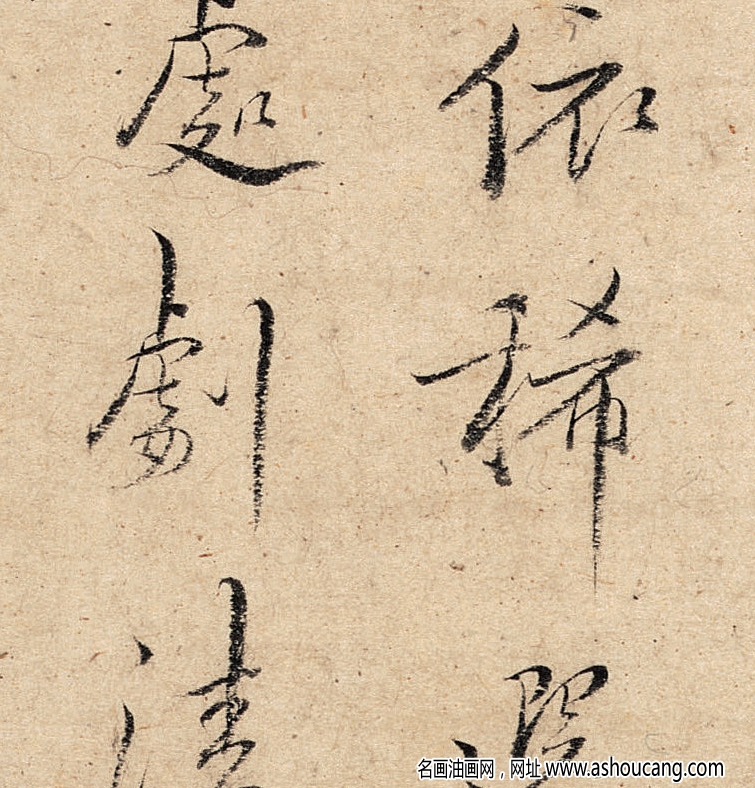 依稀
處劇清
名画油画网，网址 www.ashoucang.com